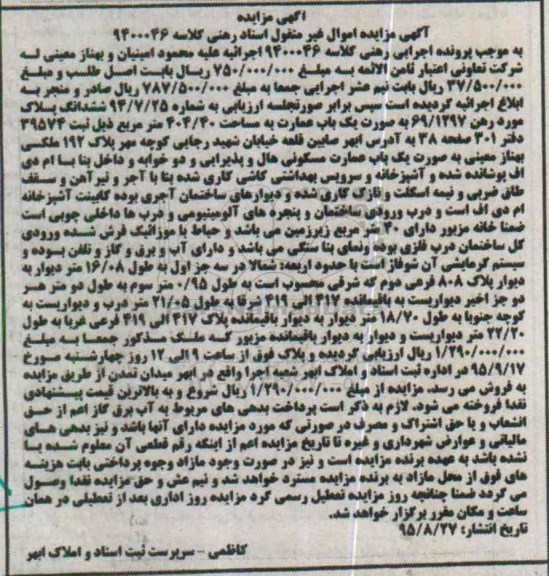 آگهی مزایده
آگهی مزایده اموال غیر منقول اسناد رهنی کلاسه ۹۴۰۰۰۴۶
به موجب پرونده اجرایی رهنی کلاسه ۹۴۰۰۰۴۶ اجرائیه علیه محمود امینیان و بهناز معینی له
شرکت تعاونی اعتبار ثامن الائمه به مبلغ ۷۵۰/۰۰۰/۰۰۰ ریال بابت اصل طلب و مبلغ
۳۷/۵۰۰/۰۰۰ ریال بابت نیم عشر اجرایی جمعا به مبلغ ۷۸۷/۵۰۰/۰۰۰ ریال صادر و منجر به
ابلاغ اجرائیه گردیده است سپس برابر صورتجلسه ارزیابی به شماره ۹۴/۷/۲۵ ششدانگ پلاک
مورد رهن ۶۹/۱۲۹۷ به صورت یک باب عمارت به مساحت ۴۰۴/۴۰ متر مربع ذیل ثبت ۳۹۵۷۴
دفتر ۳۰۱ صفحه ۳۸ به آدرس ابهر صایین قلعه خیابان شهید رجایی کوچه مهر پلاک ۱۹۲ ملکسی
بهناز معینی به صورت یک باب عمارت مسکونی هال و پذیرایی و دو خوابه و داخل بنا با ام دی
اف پوشانده شده و آشپزخانه و سرویس بهداشتی کاشی کاری شده بنا با آجر و تیرآهن و سقف
طاق ضربی و نیمه اسکلت و نازک کاری شده و دیوارهای ساختمان آجری بوده کابینت آشپزخانه
ام دی اف است و درب ورودی ساختمان و پنجره های آلومینیومی و درب ها داخلی چوبی است
ضمنا خانه مزبور دارای ۴۰ متر مربع زیرزمین می باشد و حیاط با موزائیک فرش شده ورودی
کل ساختمان درب فلزی بوده ونمای بنا سنگی می باشد و دارای آب و برق و گاز و تلفن بوده و
سیستم گرمایشی آن شوفاژ است با حدود اربعه: شمالا در سه جز اول به طول ۱۶/۰۸ متر دیوار به
دیوار پلاک ۸۰۸ فرعی دوم که شرقی محسوب است به طول ۰/۹۵ متر سوم به طول دو متر هر
دو جز اخیر دیواریست به باقیمانده ۴۱۷ الی ۴۱۹ شرقا به طول ۲۱/۰۵ متر درب و دیواریست به
کوچه جنوبا به طول ۱۸/۷۰ متر دیوار به دیوار باقیمانده پلاک ۴۱۷ الی ۴۱۹ فرعی غربا به طول
۲۲/۲۰ متر دیواریست و دیوار به دیوار باقیمانده مزبور که ملک مذکور جمعا به مبلغ
۱/۲۹۰/۰۰۰/۰۰۰ ریال ارزیابی گردیده و پلاک فوق از ساعت ۹ الی ۱۲ روز چهارشنبه مورخ
۹۵/۹/۱۷ در اداره ثبت اسناد و املاک ابهر شعبه اجرا واقع در ابهر میدان تمدن از طریق مزایده
به فروش می رسد. مزایده از مبلغ ۱/۲۹۰/۰۰۰/۰۰۰ ریال شروع و به بالاترین قیمت پیشنهادی
نقدا فروخته می شود. لازم به ذکر است پرداخت بدهی های مربوط به آب برق گاز اعم از حق
انشعاب و یا حق اشتراک و مصرف در صورتی که مورد مزایده دارای آنها باشد و نیز بدهی های
مالیاتی و عوارض شهرداری و غیره تا تاریخ مزایده اعم از اینکه رقم قطعی آن معلوم شده یا
نشده باشد به عهده برنده مزایده است و نیز در صورت وجود مازاد وجوه پرداختی بابت هزینه
های فوق از محل مازاد به برنده مزایده مسترد خواهد شد و نیم عش و حق مزایده نقدا وصول
می گردد ضمنا چنانچه روز مزایده تعطیل رسمی گرد مزایده روز اداری بعد از تعطیلی در همان
ساعت و مکان مقرر برگزار خواهد شد.
تاریخ انتشار: ۹۵/۸/۲۷
کاظمی – سرپرست ثبت اسناد و املاک ابهر